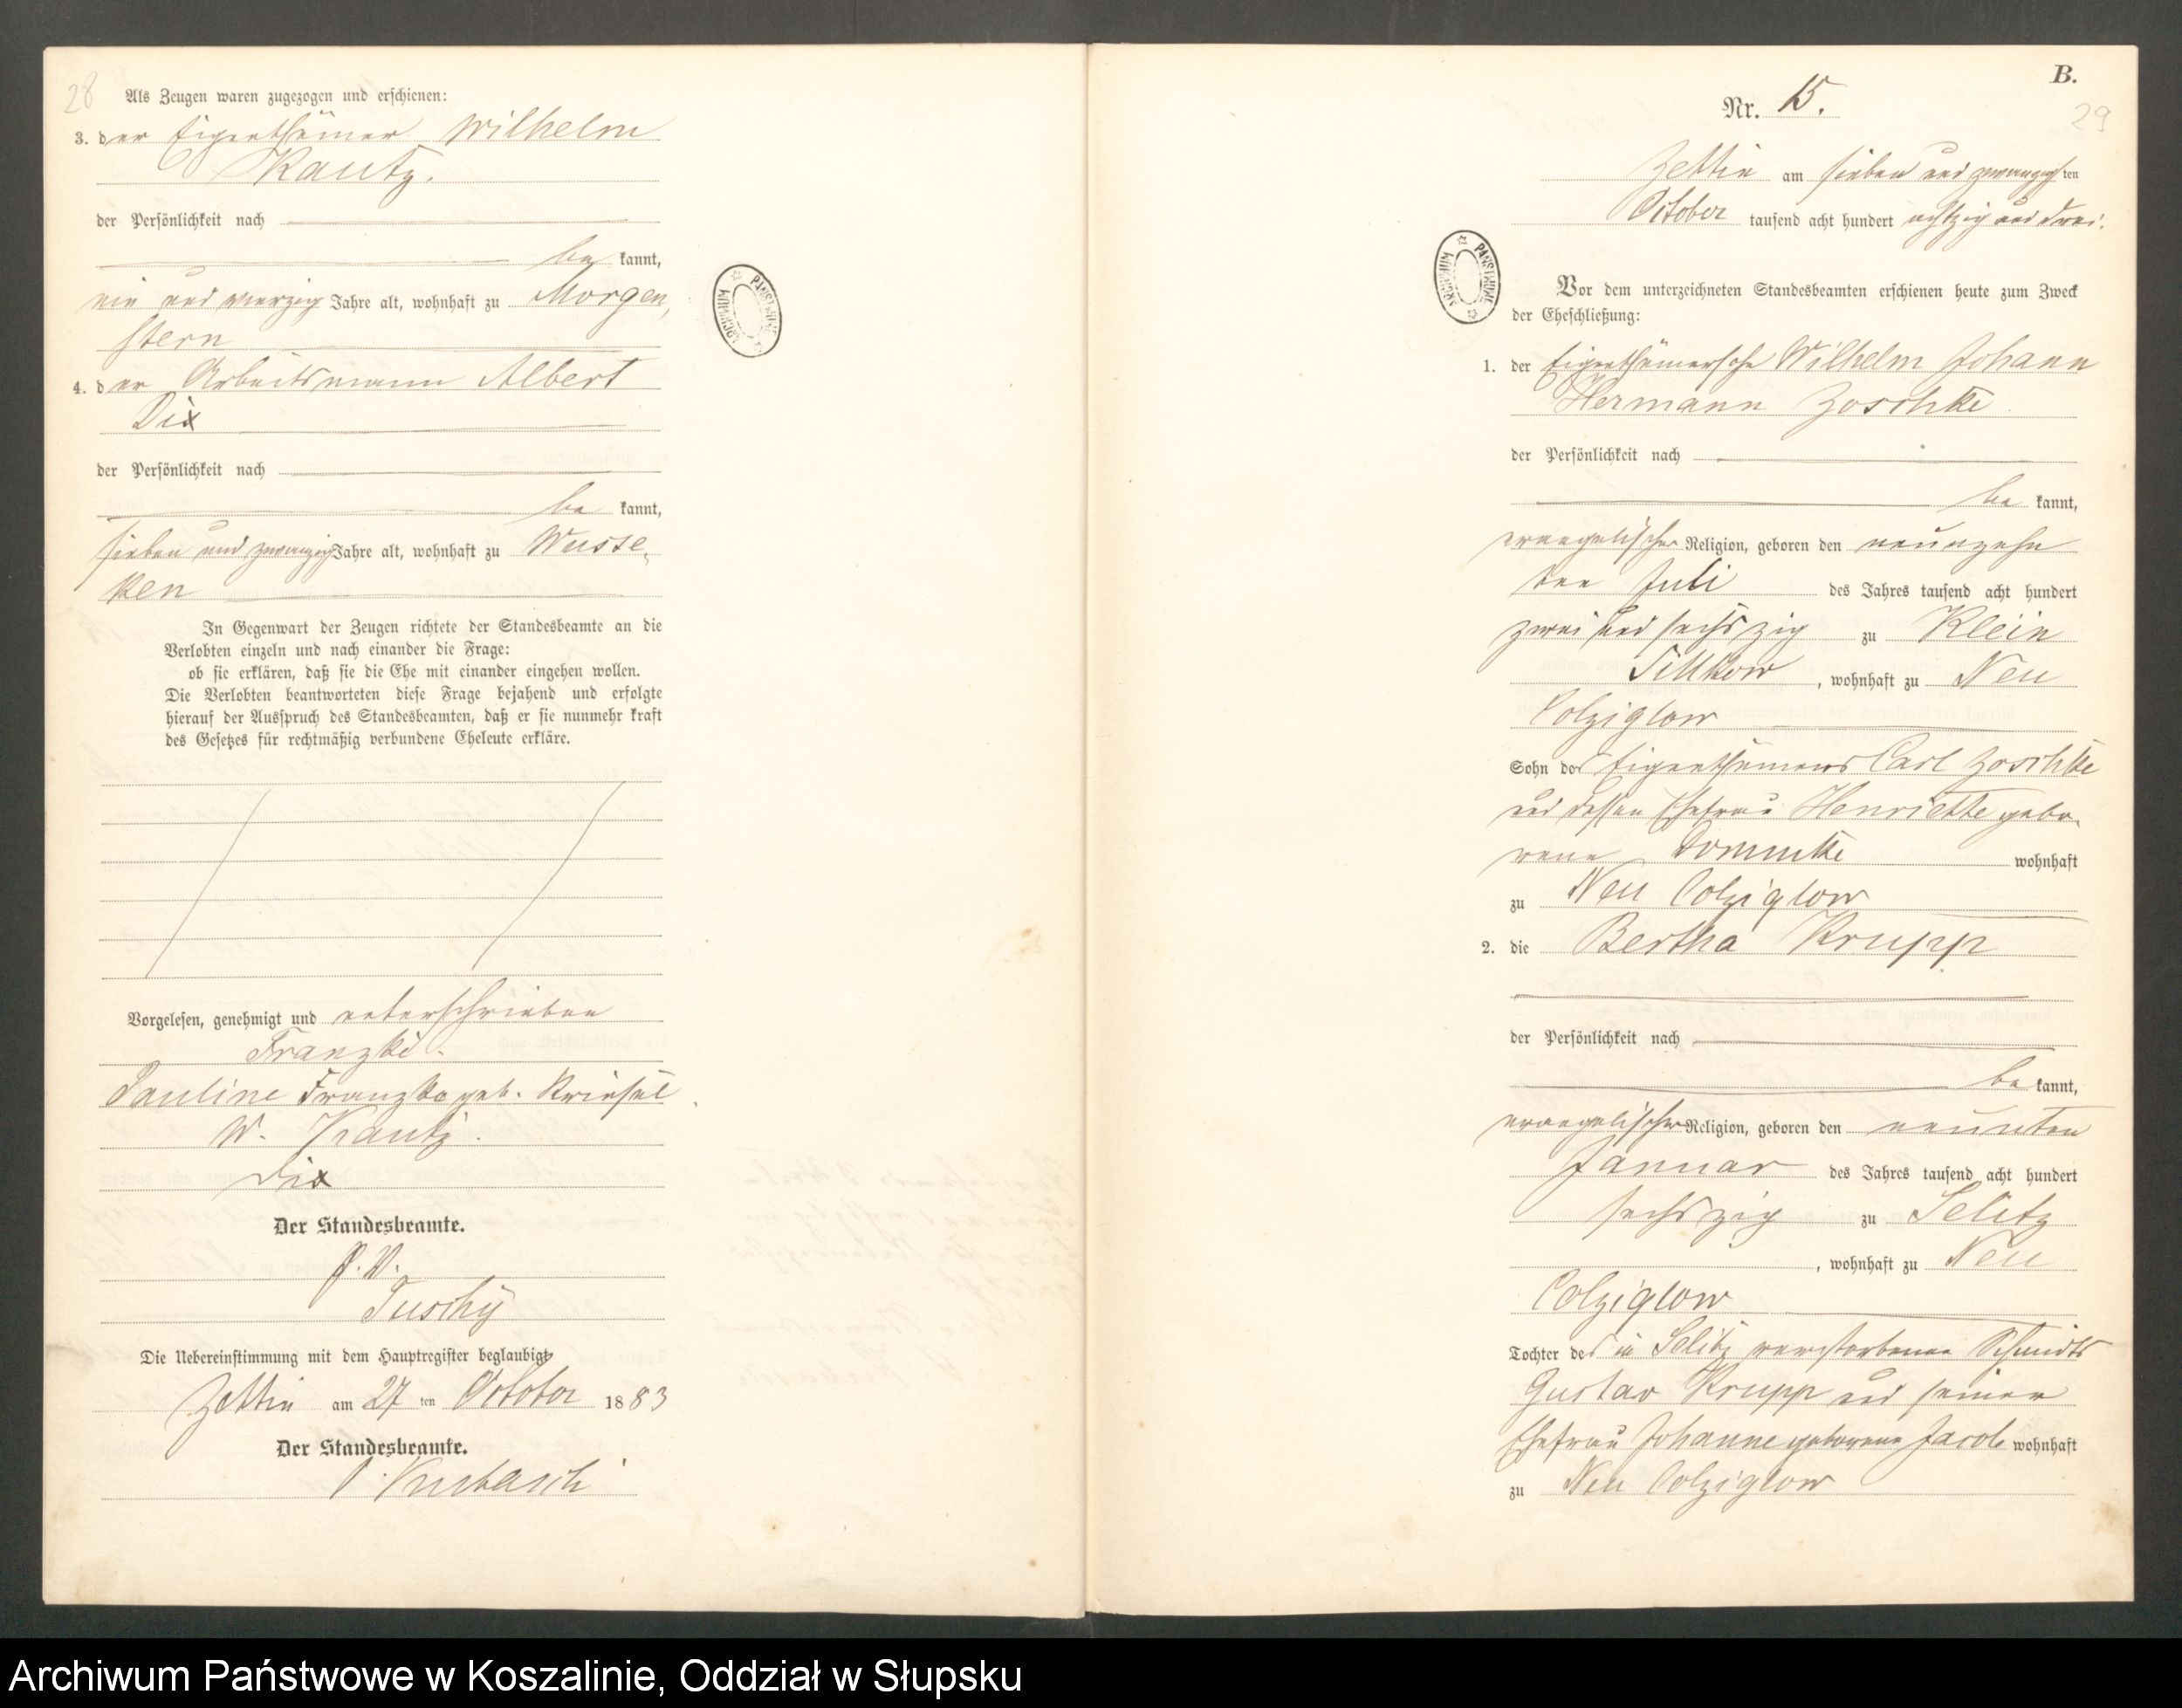 28
Als Zeugen waren zugezogen und erschienen:
3. der Eigenthümer Wilhelm
Kautz.
der Persönlichkeit nach
be kannt,
ein und vierzig Jahre alt, wohnhaft zu Morgen,
stern
4. der Arbeitsmann Albert
Dix
der Persönlichkeit nach
be kannt,
sieben und zwanzig Jahre alt, wohnhaft zu Wusse,
ken
In Gegenwart der Zeugen richtete der Standesbeamte an die
Verlobten einzeln und nach einander die Frage:
ob sie erklären, daß sie die Ehe mit einander eingehen wollen.
Die Verlobten beantworteten diese Frage bejahend und erfolgte
hierauf der Ausspruch des Standesbeamten, daß er sie nunmehr kraft
des Gesetzes für rechtmäßig verbundene Eheleute erkläre.
Vorgelesen, genehmigt und unterschrieben
Franzke.
Pauline Franzke geb. Kriesel
W. Kautz.
Dix
Der Standesbeamte.
P. V.
Puschy
Die Uebereinstimmung mit dem Hauptregister beglaubigt
Zettin am 27 ten October 1883
Der Standesbeamte.
ARCHIWUM PAŃSTWOWE
B.
29
Nr. 15.
Zettin am sieben und zwanzig ten
October tausend acht hundert achtzig und drei.
ARCHIWUM PAŃSTWOWE
Vor dem unterzeichneten Standesbeamten erschienen heute zum Zweck
der Eheschließung:
1. der Eigenthümersohn Wilhelm Johann
Hermann Zoschke
der Persönlichkeit nach
be kannt,
evangelischer Religion, geboren den neunzehn
ten Juli des Jahres tausend acht hundert
zwei und sechszig zu Klein
Silkow, wohnhaft zu Neu
Colziglow
Sohn des Eigenthümers Carl Zoschke
und dessen Ehefrau Henriette gebo,
rene wohnhaft
zu Neu Colziglow
2. die Bertha Krupp
der Persönlichkeit nach
be kannt,
evangelischer Religion, geboren den neunten
Januar des Jahres tausend acht hundert
sechszig zu Selitz
, wohnhaft zu Neu
Colziglow
Tochter des in Selitz verstorbenen Schmidts
Gustav Krupp und seiner
Ehefrau Johanne geborene Jacob wohnhaft
zu Neu Colziglow
Archiwum Państwowe w Koszalinie, Oddział w Słupsku